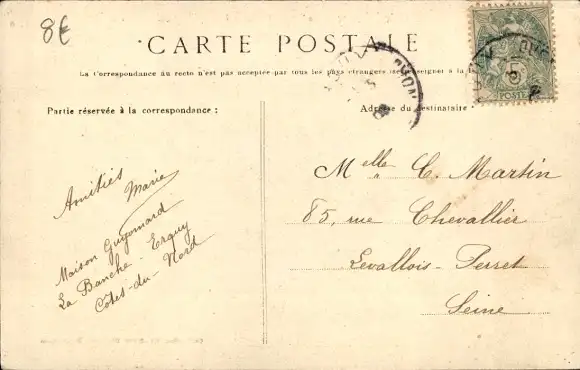 8€
CARTE POSTALE
La Correspondance au recto n'est pas acceptée par tous les pays étrangers
Partie réservée à la correspondance :
Adresse du destinataire
Amitiés
Marie
Maison Guyomard
La Banche - Erquy
Côtes-du-Nord
Melle C. Martin
85, rue Chevallier
Levallois-Perret
Seine
POSTE